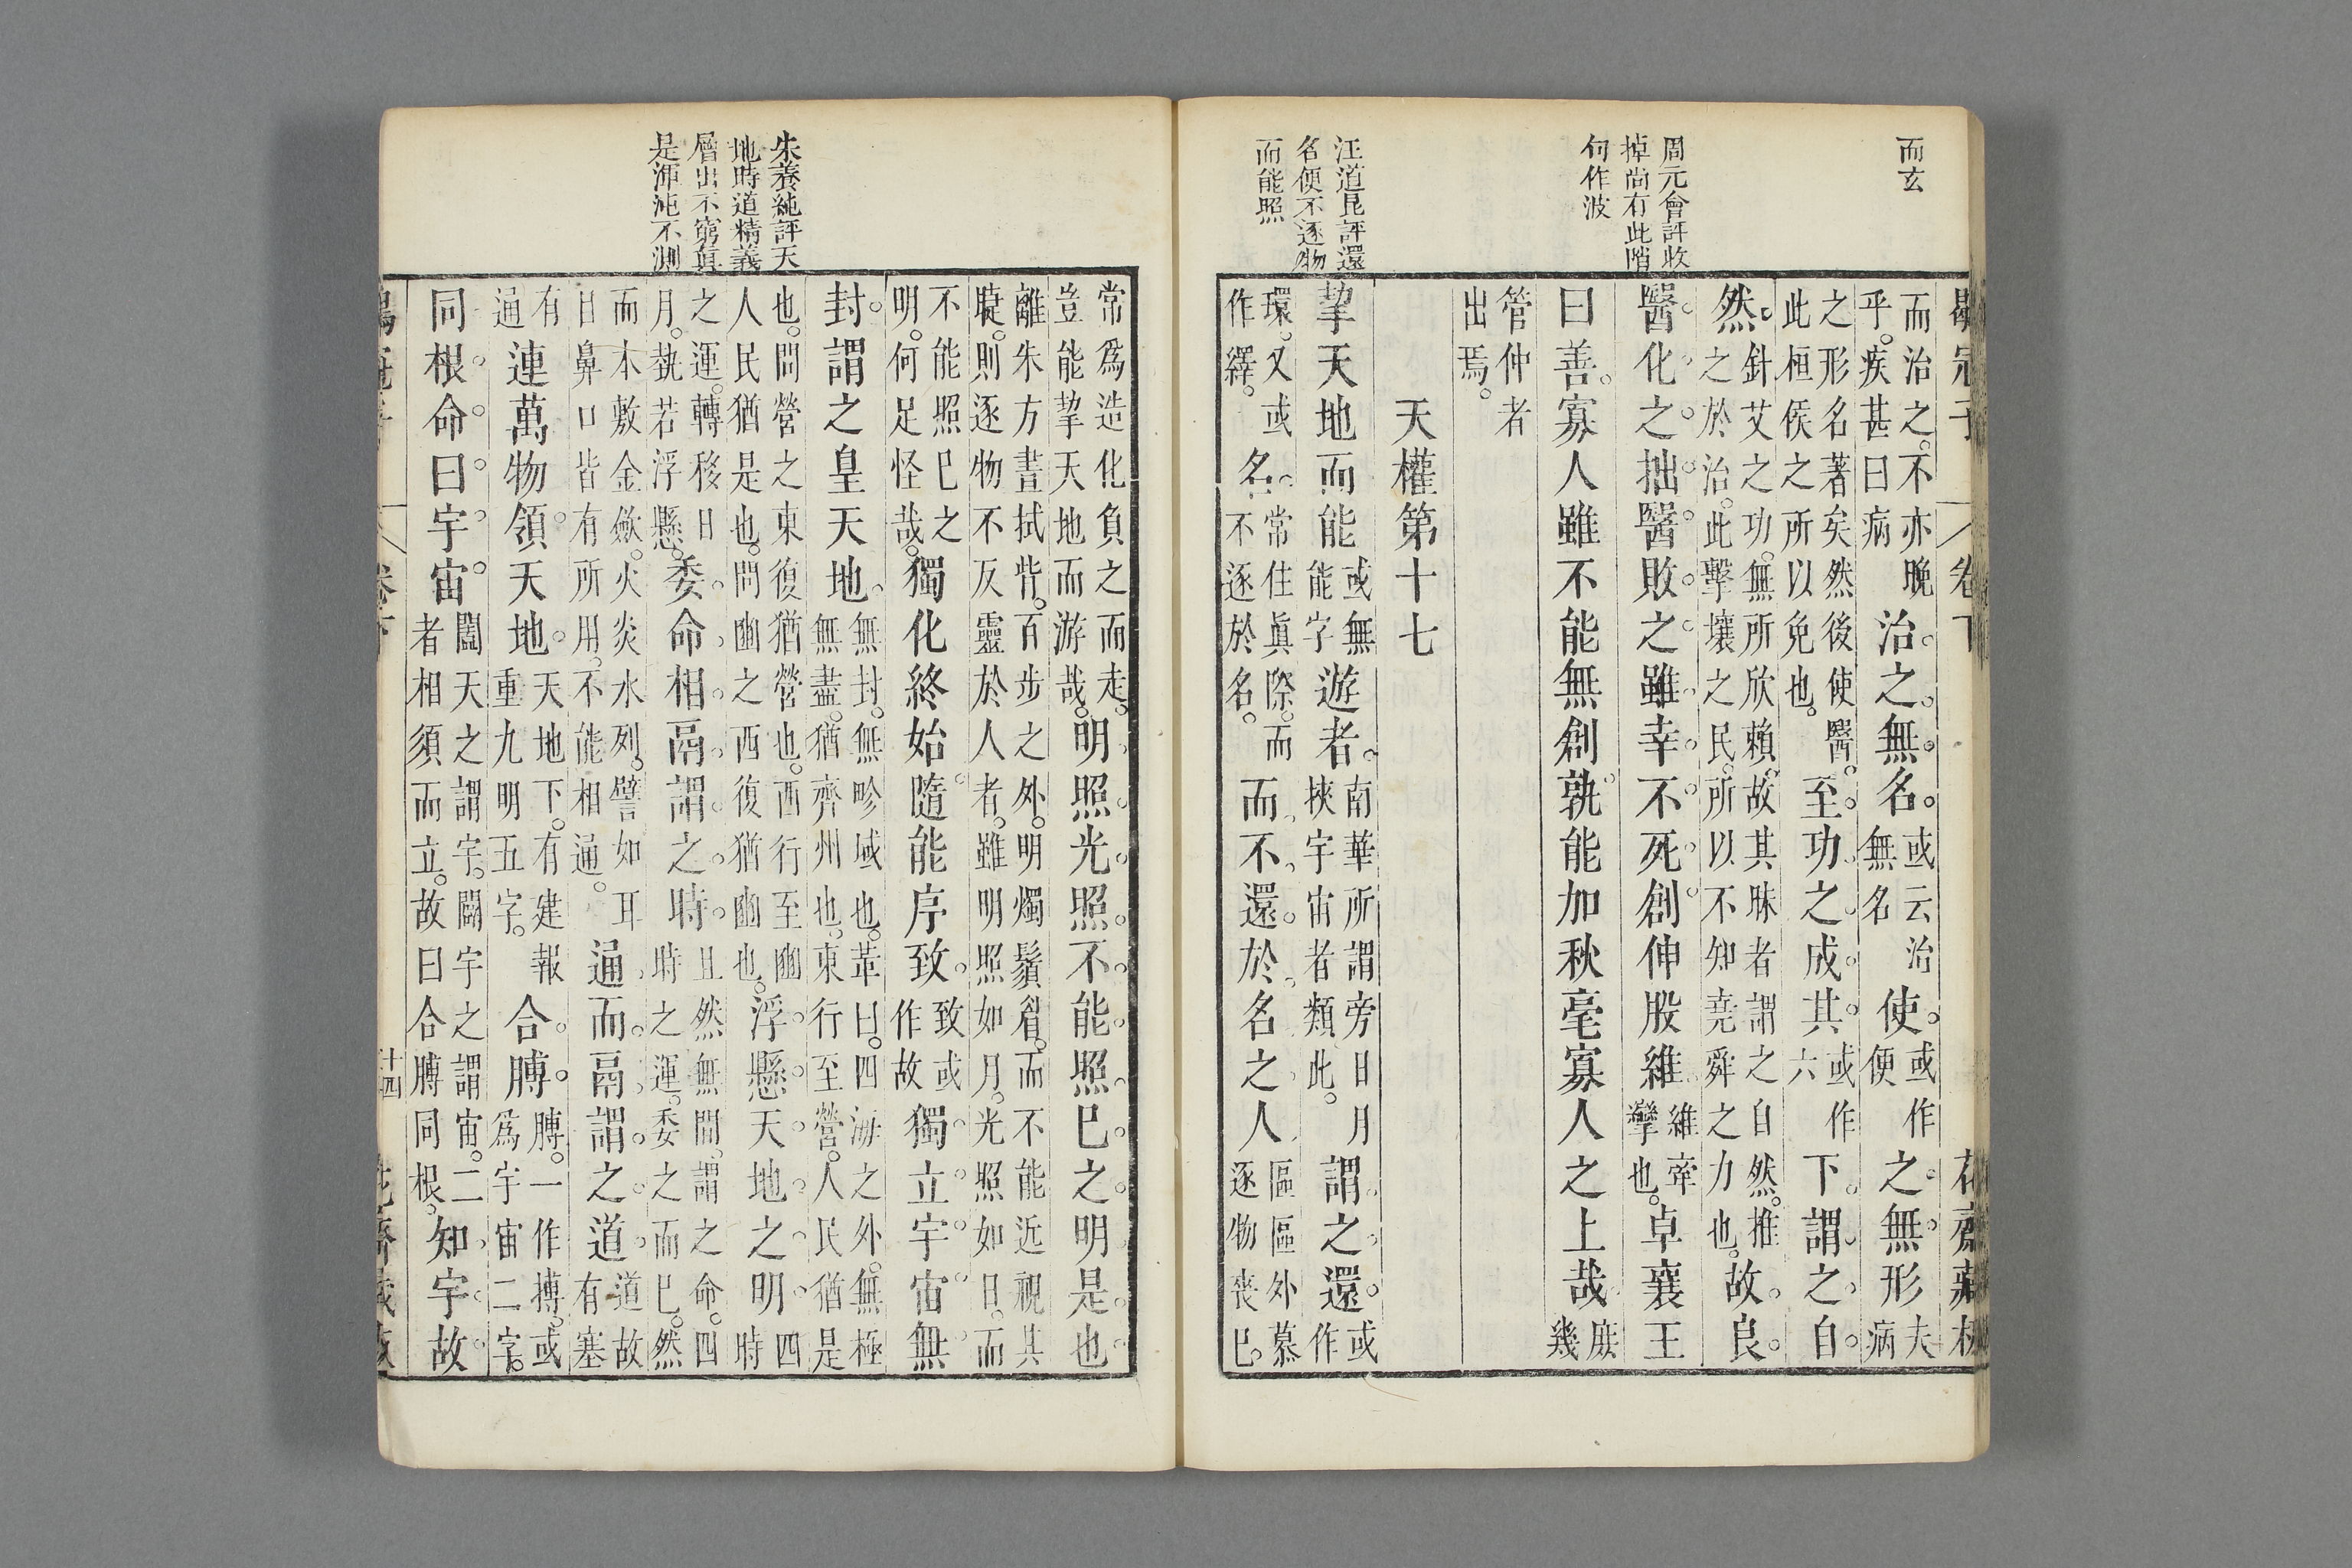 而玄
周元會評收
掉尚有此階
句作波
汪道昆評還
名便不逐物
而能照
而治之不亦晚乎疾甚曰病治之無名或云治無名使或作便之無形夫病
之形名著矣然後使醫此桓侯之所以免也至功之成其或作六下謂之自
然針艾之功無所欣賴故其昧者謂之自然推之於治此擊壤之民所以不知堯舜之力也故良
醫化之拙醫敗之雖幸不死創伸股維維牽攣也卓襄王
曰善寡人雖不能無創孰能加秋毫寡人之上哉庶幾
管仲者出焉
天權第十七
挈天地而能或無能字遊者南華所謂旁日月挾宇宙者類此謂之還或作
環又或作繹名常住眞際而不逐於名而不還於名之人區區外慕逐物喪已
朱養純評天
地時道精義
層出不窮眞
是渾沌不測
常爲造化負之而走豈能挈天地而游哉明照光照不能照巳之明是也
離朱方晝拭眥百步之外明燭鬚眉而不能近視其睫則逐物不反靈於人者雖明照如月光照如日而
不能照巳之明何足怪哉獨化終始隨能序致致或作故獨立宇宙無
封謂之皇天地無封無畛域也革曰四海之外無極無盡猶齊州也東行至營人民猶是
也問營之東復猶營也西行至豳人民猶是也問豳之西復猶豳也浮懸天地之明四時
之運轉移日月孰若浮懸委命相鬲謂之時且然無間謂之命四時之運委之而巳然
而木敷金斂火炎水列譬如耳目鼻口皆有所用不能相通通而鬲謂之道道故有塞
有通連萬物領天地天地下有建報重九明五字合膊膊一作摶或爲宇宙二字
同根命曰宇宙闔天之謂宇闢宇之謂宙二者相須而立故曰合膊同根知宇故